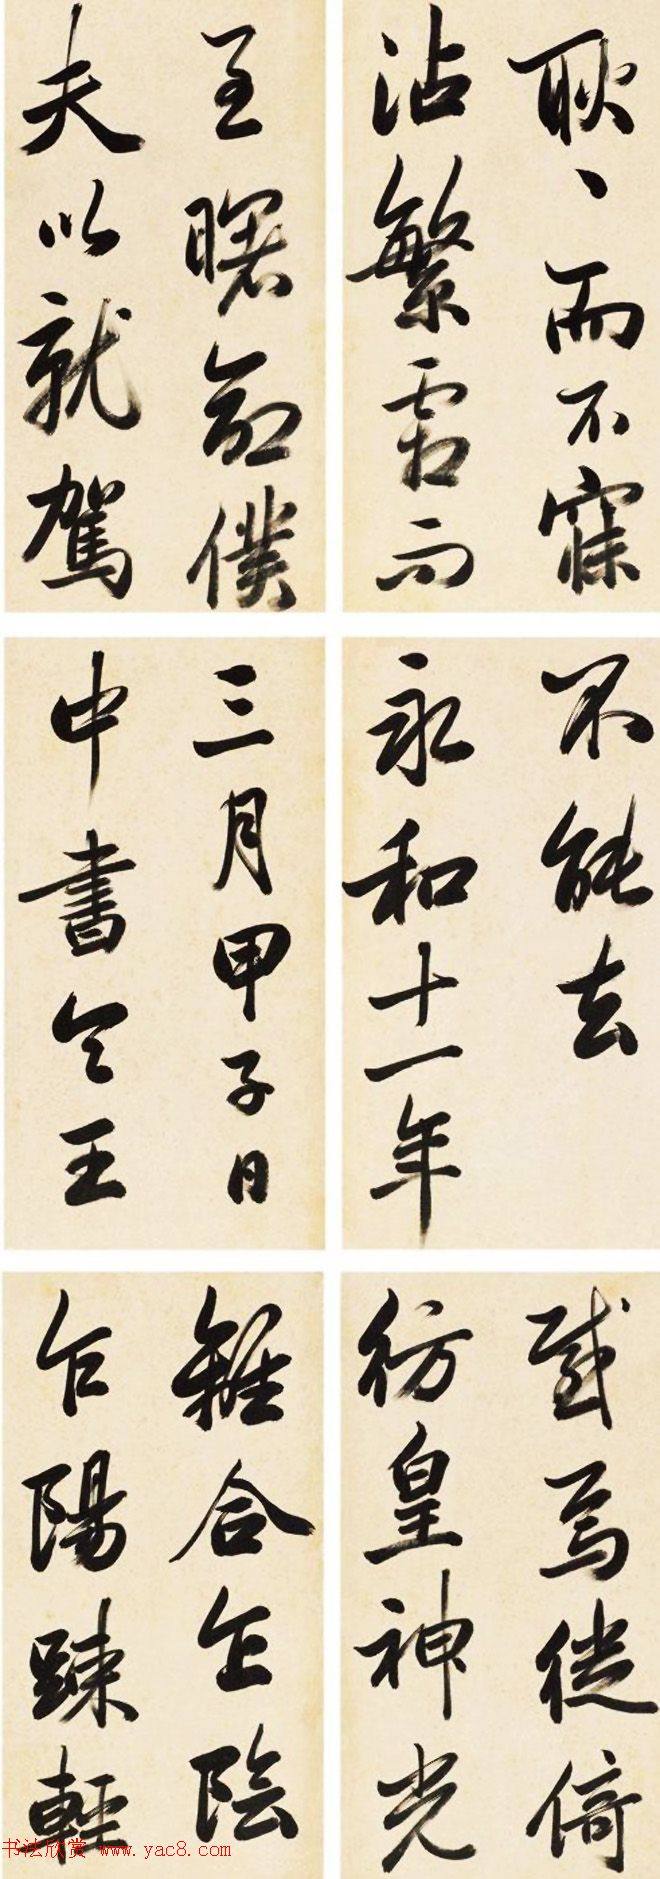 耿〻而不寐
沾繁霜而
至曙命僕
夫以就駕
不能去
永和十一年
三月甲子日
中書令王
感焉徙倚
彷皇神光
離合乍陰
乍陽踈輕
书法欣赏 www.yac8.com